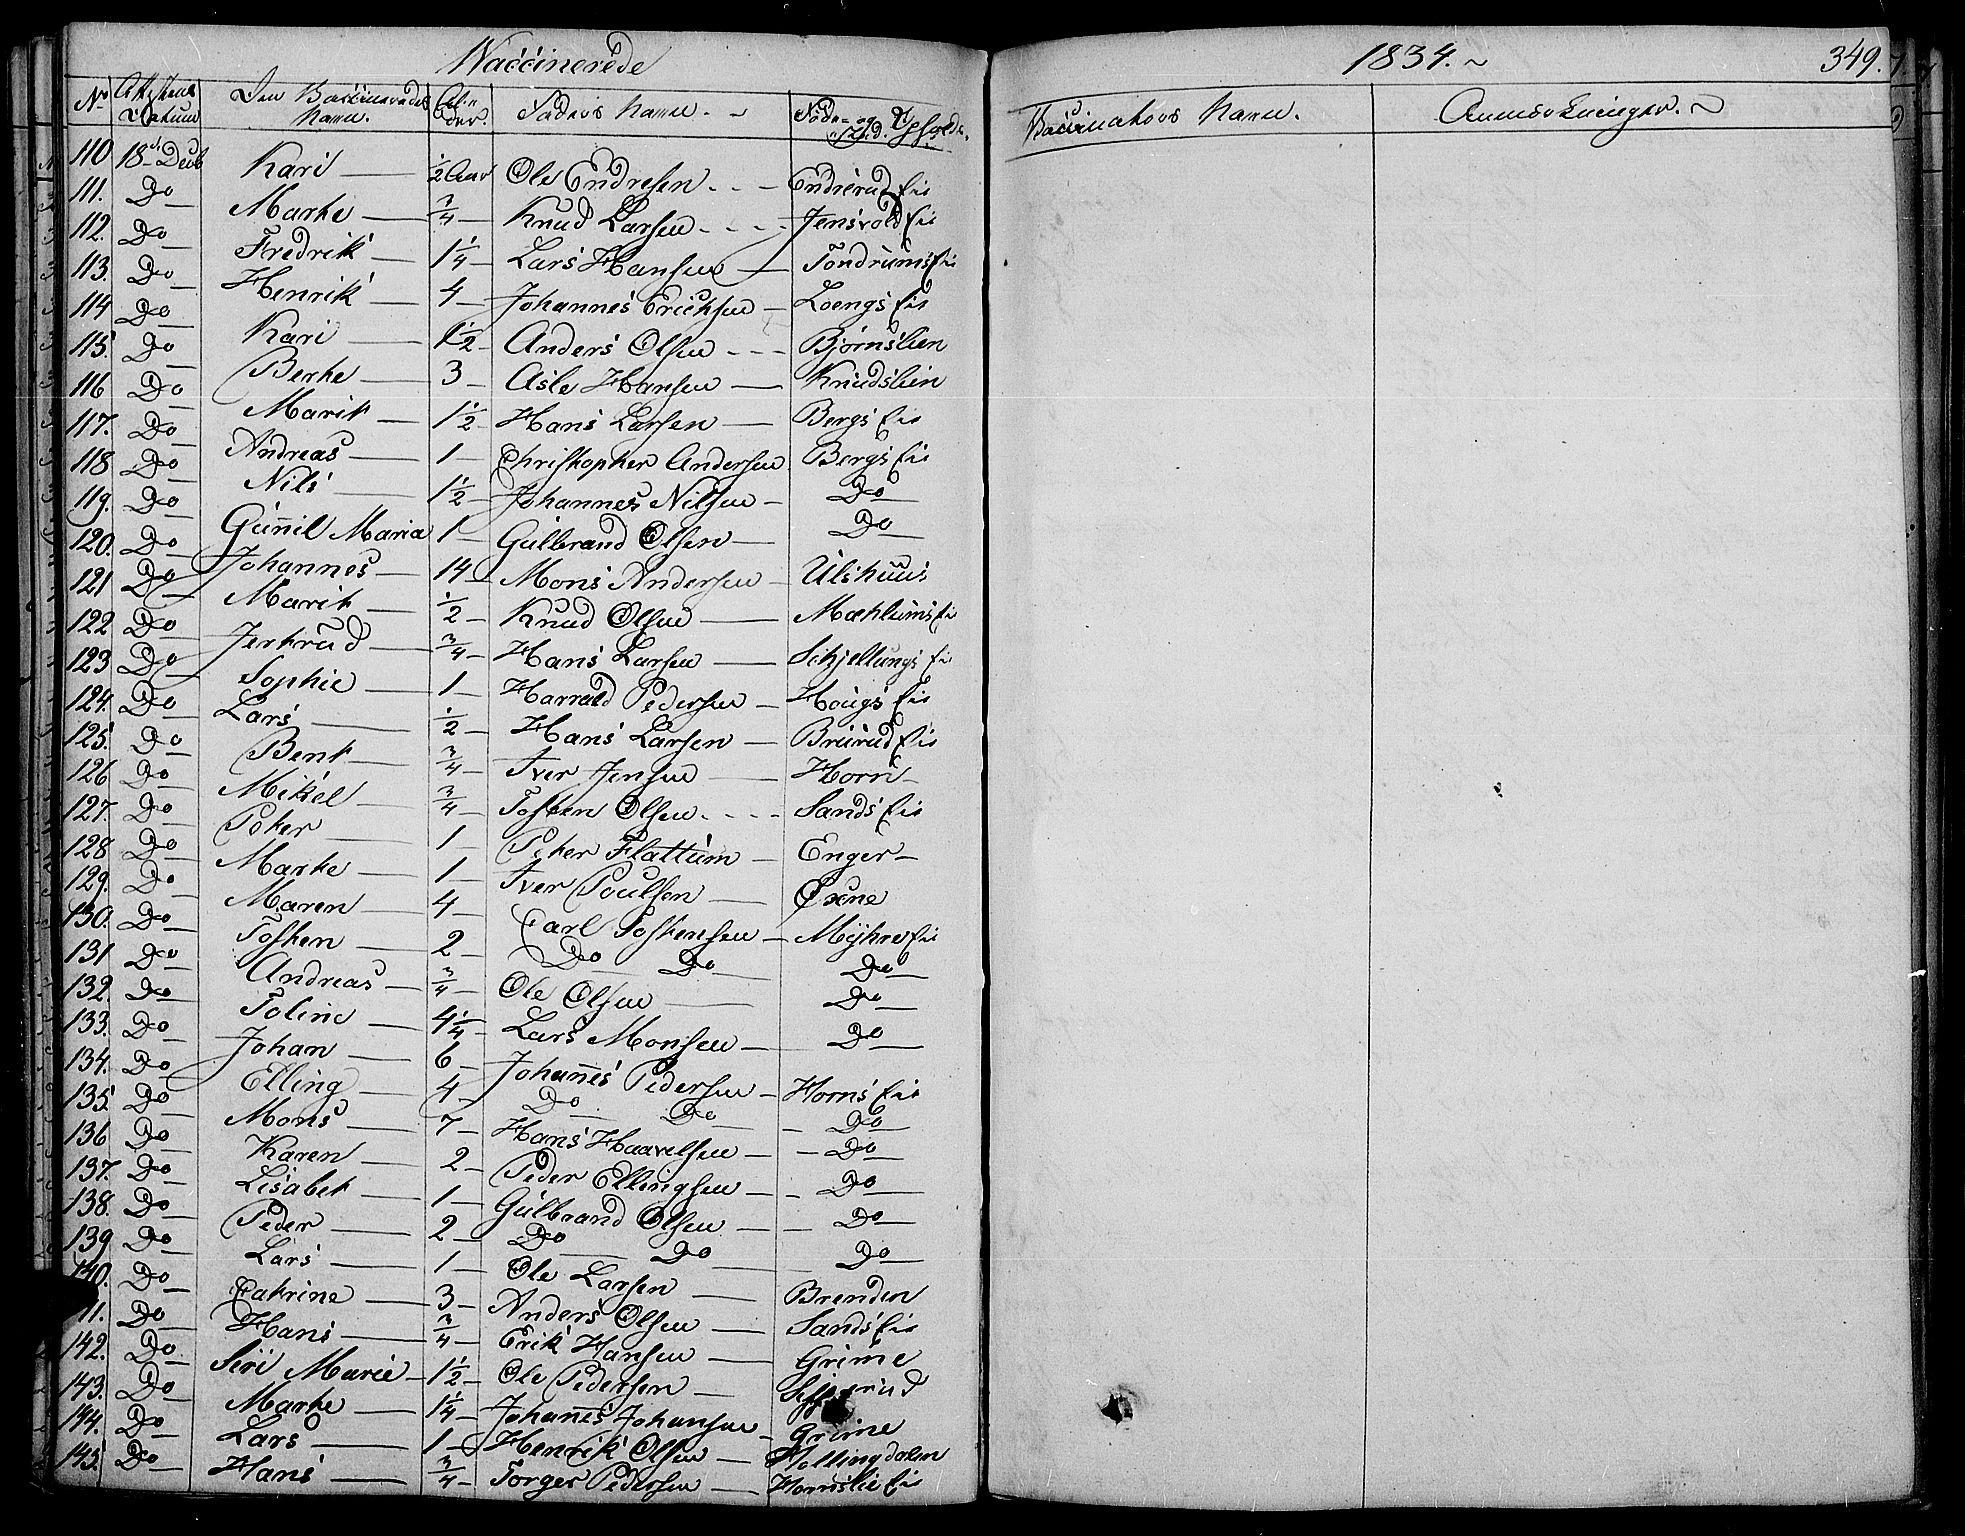 Vaccinerede 1834. ~ 349.
No Attestens Datum Den Vaccineredes Navn. Alder. Faders Navn. Føde- og Opholds Sted. Vaccinateurs Navn. Anmærkninger. ~
110 18de Decb Kari ½ Aar Ole Endresen Endrerud Eie
111. Do Marte ¾ Knud Larsen Jensvold Eie
112. Do Fredrik 1¼ Lars Hansen Tondrums Eie
113. Do Henrik 4 Johannes Ericksen Loengs Eie
114 Do Kari 1½ Anders Olsen Bjørnslien
115. Do Berte 3 Asle Hansen Knudslien
116 Do Marit 1½ Hans Larsen Bergs Eie
117. Do Andreas 1 Christopher Andersen Bergs Eie
118 Do Nils 1½ Johannes Nilsen Do
119. Do Gunil Maria 1 Gulbrand Olsen Do
120. Do Johannes 14 Mons Andersen Ulshuus
121 Do Marit ½ Knud Olsen Mæhlums Eie
122 Do Jertrud ¾ Hans Larsen Schjellungs Eie
123 Do Sophie 1 Harrald Pedersen Hougs Eie
124. Do Lars ½ Hans Larsen Brurud Eie
125. Do Bent ¾ Iver Jensen Horn
126 Do Mikel ¾ Tosten Olsen Sands Eie
127. Do Peter 1 Peter Flattum Enger
128 Do Marte 1 Iver Poulsen Øxne
129. Do Maren 4 Carl Tostensen Myhre Eie
130. Do Tosten 2 Do Do Do
131 Do Andreas ¾ Ole Olsen Do
132. Do Toline 4¼ Lars Monsen Do
133. Do Johan 6 Johannes Pedersen Horns Eie
134. Do Elling 4 Do Do Do
135 Do Mons 7 Hans Haavelsen Do
136 Do Karen 2 Peder Ellingsen Do
137. Do Lisabet 1 Gulbrand Olsen Do
138. Do Peder 2 Do Do Do
139 Do Lars 1 Ole Larsen Brenden
140. Do Catrine 3 Anders Olsen Sands Eie
41. Do Hans ¾ Erik Hansen Grime
142. Do Siri Marie 1½ Ole Pedersen
143. Do Marte 1¼ Johannes Johansen Grime
144. Do Lars 1 Henrik Olsen Hollingdalen
145. Do Hans ¾ Torger Pedersen Hornslie Eie